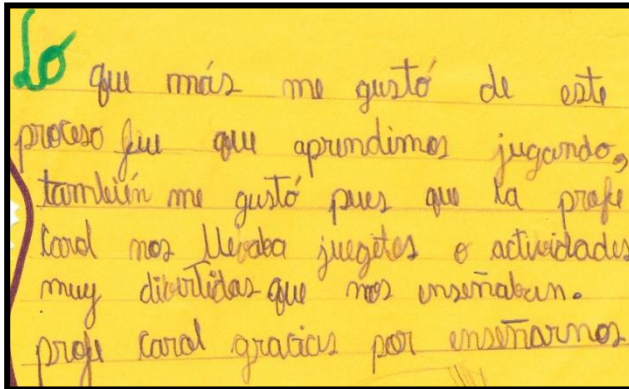 Lo que más me gustó de este
proceso fue que aprendimos jugando,
también me gustó pues que la profe
Carol nos llevaba juegetes o actividades
muy divertidas que nos enseñaban.
profe Carol gracias por enseñarnos